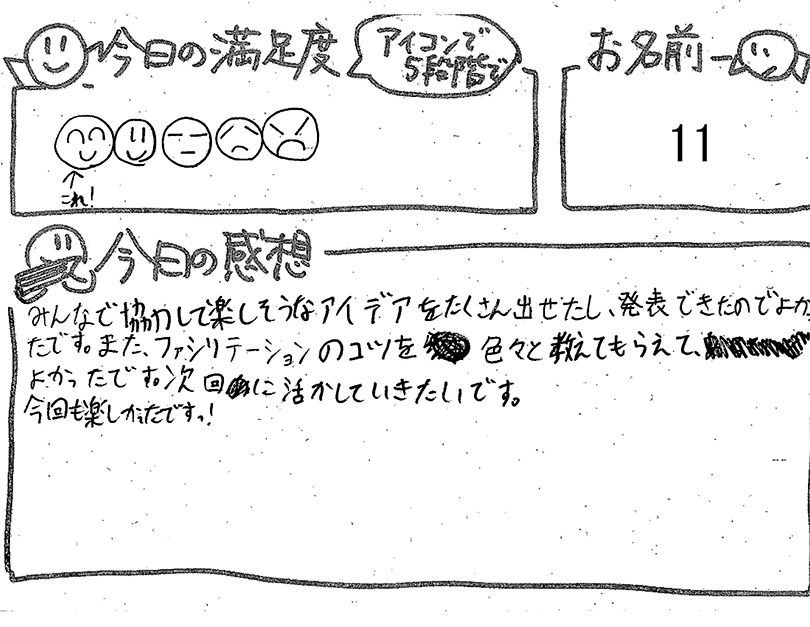 今日の満足度
アイコンで
5段階で
お名前
これ!
11
今日の感想
みんなで協力して楽しそうなアイデアをたくさん出せたし、発表できたのでよか
たです。また、ファシリテーションのコツを色々と教えてもらえて、
よかったです。次回に活かしていきたいです。
今回も楽しかったですっ!